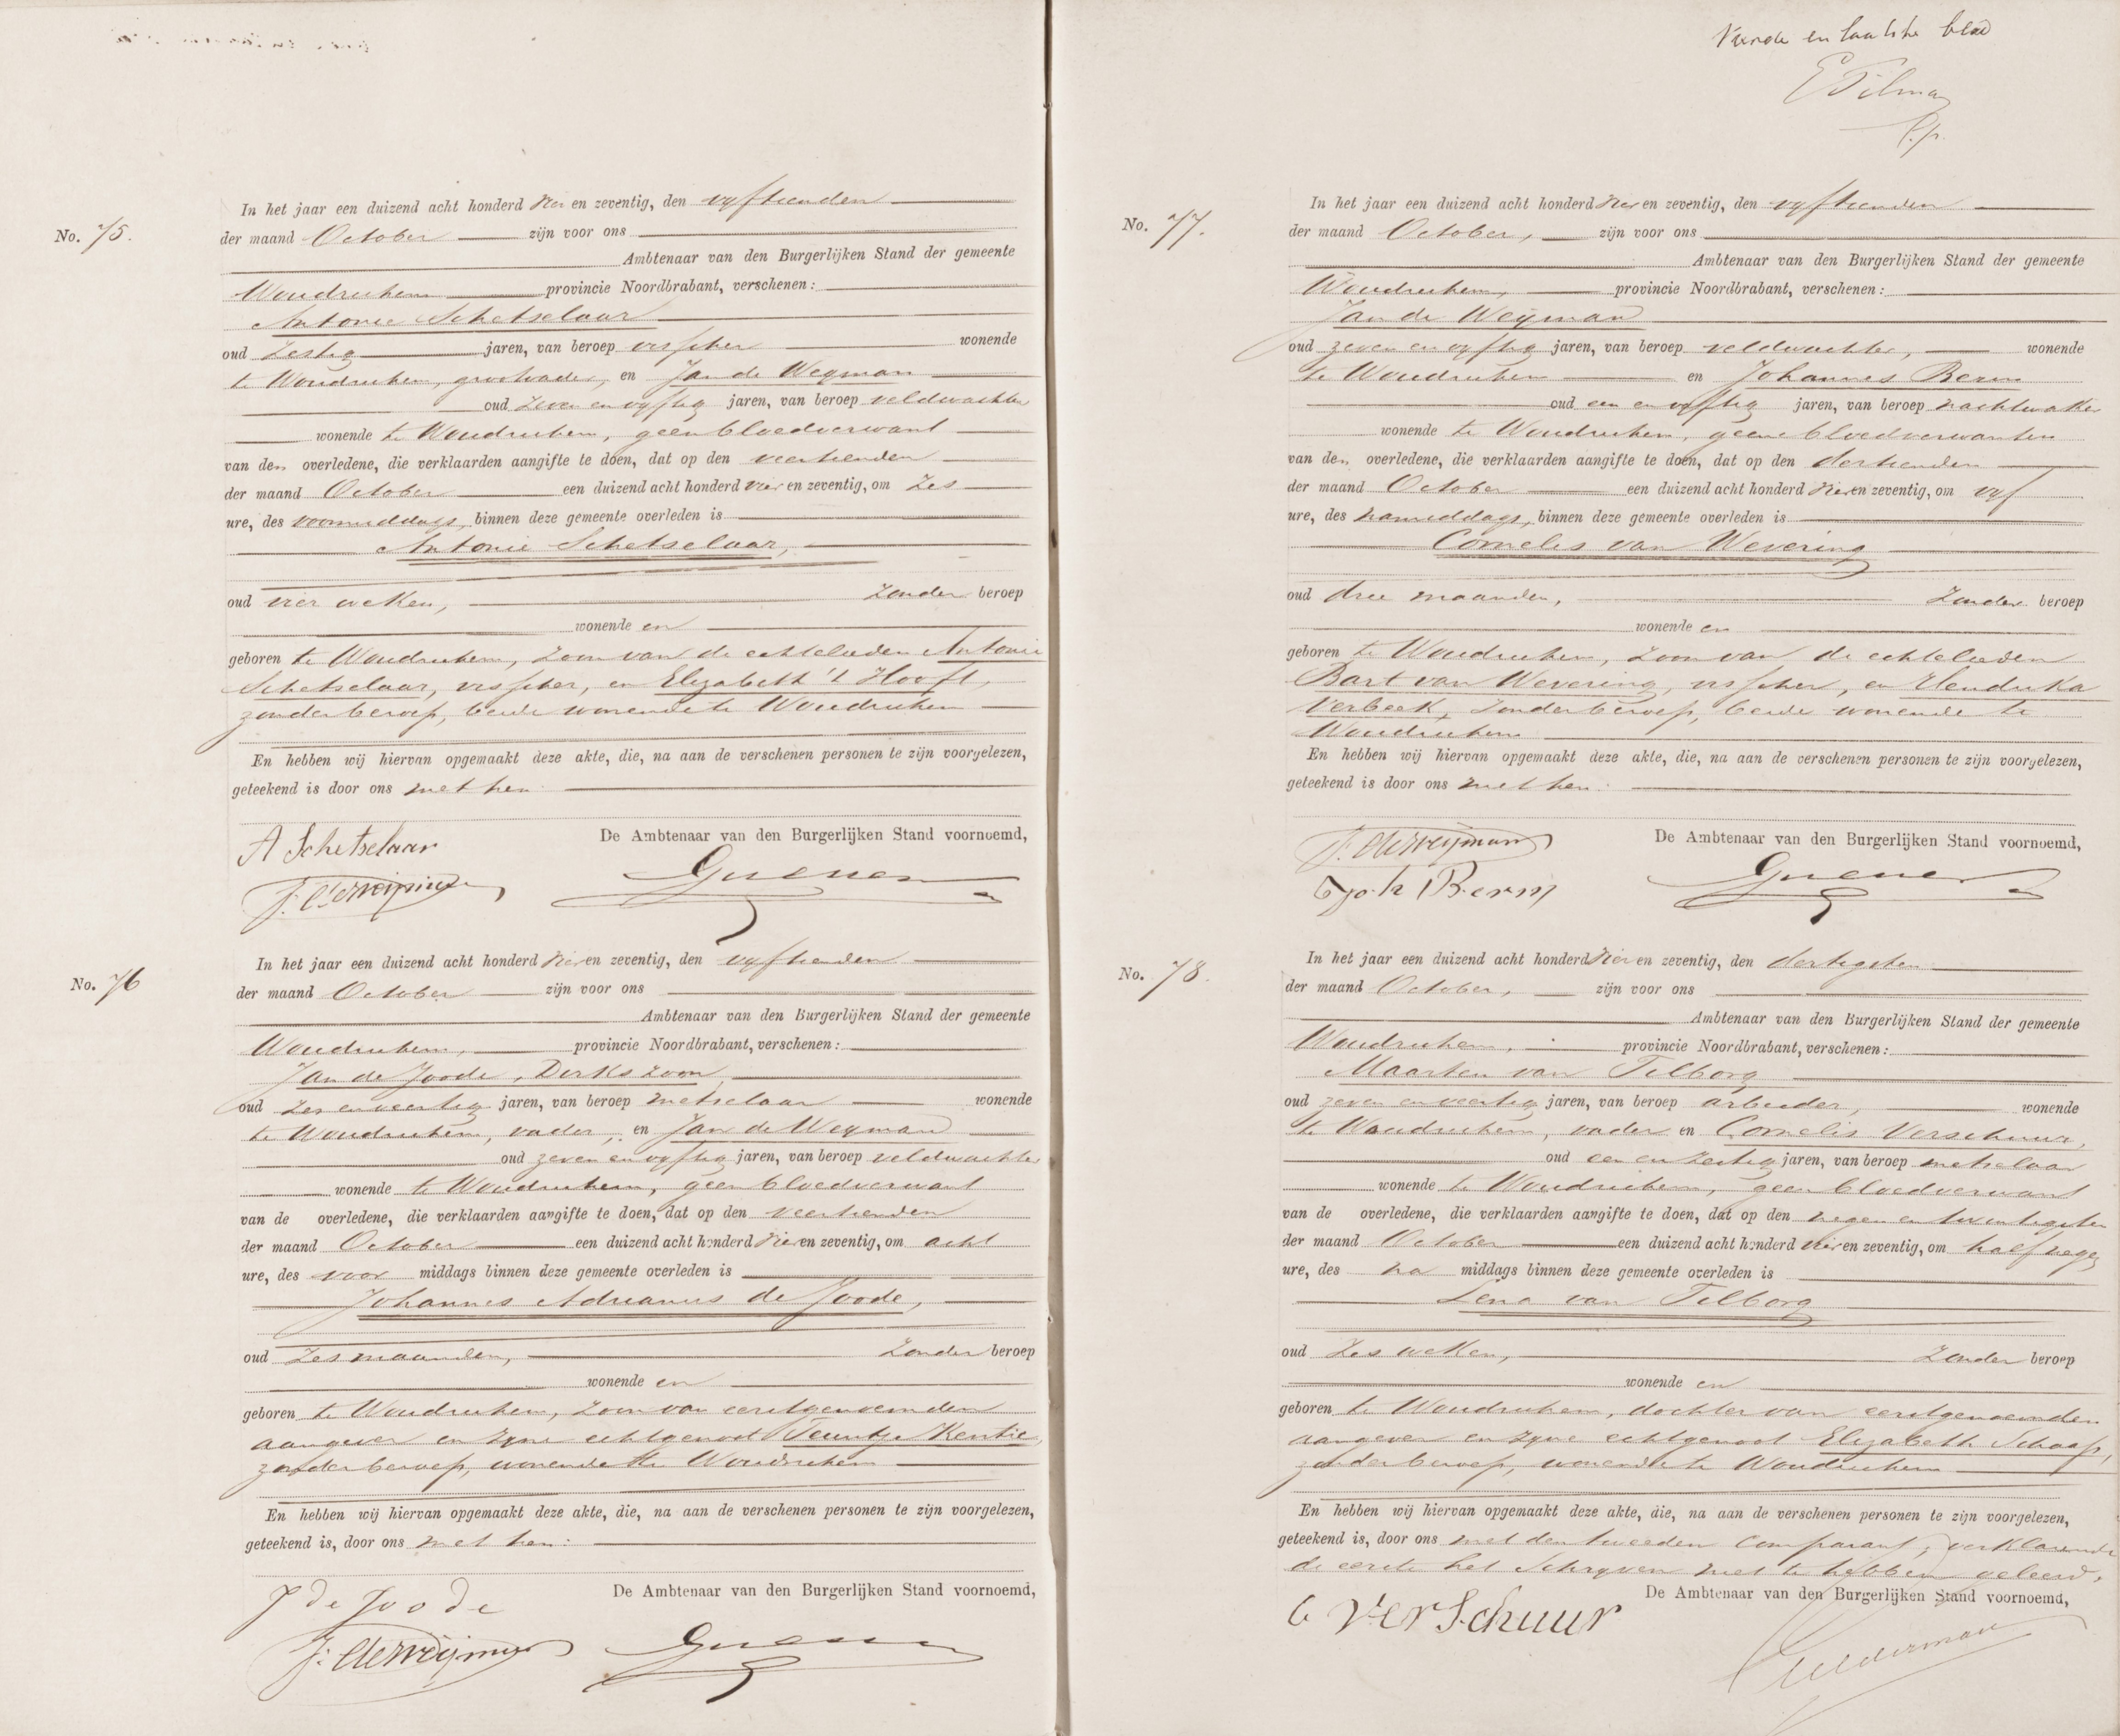 No. 75.
In het jaar een duizend acht honderd vier en zeventig, den vyftienden
der maand October zijn voor ons
Ambtenaar van den Burgerlijken Stand der gemeente
Woudrichem provincie Noordbrabant, verschenen:
Antonie Schetselaar
oud Zestig jaren, van beroep visscher wonende
te Woudrichem, grootvader, en Jan de Weyman
oud zeven en vyftig jaren, van beroep veldwachter
wonende te Woudrichem, geen bloedverwant
van den overledene, die verklaarden aangifte te doen, dat op den veertienden
der maand October een duizend acht honderd vier en zeventig, om zes
ure, des voormiddags, binnen deze gemeente overleden is
Antonie Schetselaar,
oud vier weken, zonder beroep
wonende en
geboren te Woudrichem, zoon van de echtelieden Antonie
Schetselaar, visscher, en Elizabeth 't Hooft,
zonder beroep, beide wonende te Woudrichem
En hebben wij hiervan opgemaakt deze akte, die, na aan de verschenen personen te zijn voorgelezen,
geteekend is door ons met hen.
De Ambtenaar van den Burgerlijken Stand voornoemd,
A Schetselaar
No. 76
In het jaar een duizend acht honderd vier en zeventig, den vyftienden
der maand October zijn voor ons
Ambtenaar van den Burgerlijken Stand der gemeente
Woudrichem, provincie Noordbrabant, verschenen:
Jan de Joode, Dirkszoon,
oud zes en veertig jaren, van beroep metselaar wonende
te Woudrichem, vader, en Jan de Weyman
oud zeven en vyftig jaren, van beroep veldwachter
wonende te Woudrichem, geen bloedverwant
van de overledene, die verklaarden aangifte te doen, dat op den veertienden
der maand October een duizend acht honderd vier en zeventig, om acht
ure, des voor middags binnen deze gemeente overleden is
Johannes Adrianus de Joode,
oud zes maanden, zonder beroep
wonende en
geboren te Woudrichem, zoon van eerstgenoemden
aangever en zyne echtgenoot Teuntje Kentie,
zonder beroep, wonende te Woudrichem
En hebben wij hiervan opgemaakt deze akte, die, na aan de verschenen personen te zijn voorgelezen,
geteekend is, door ons met hen.
De Ambtenaar van den Burgerlijken Stand voornoemd,
J de Joode
J. de Weijman
Vierde en laatste blad
No. 77.
In het jaar een duizend acht honderd vier en zeventig, den vyftienden
der maand October, zijn voor ons
Ambtenaar van den Burgerlijken Stand der gemeente
Woudrichem, provincie Noordbrabant, verschenen:
Jan de Weyman
oud zeven en vyftig jaren, van beroep veldwachter, wonende
te Woudrichem en Johannes Berm
oud een en vyftig jaren, van beroep nachtwaker
wonende te Woudrichem, geene bloedverwanten
van den overledene, die verklaarden aangifte te doen, dat op den dertienden
der maand October een duizend acht honderd vier en zeventig, om vyf
ure, des namiddags, binnen deze gemeente overleden is
Cornelis van Wevering
oud drie maanden, zonder beroep
wonende en
geboren te Woudrichem, zoon van de echtelieden
Bart van Wevering, visscher, en Hendrika
Verbeek, zonder beroep, beide wonende te
Woudrichem
En hebben wij hiervan opgemaakt deze akte, die, na aan de verschenen personen te zijn voorgelezen,
geteekend is door ons met hen.
De Ambtenaar van den Burgerlijken Stand voornoemd,
J. de Weijman
Joh Berm
No. 78.
In het jaar een duizend acht honderd vier en zeventig, den dertigsten
der maand October, zijn voor ons
Ambtenaar van den Burgerlijken Stand der gemeente
Woudrichem, provincie Noordbrabant, verschenen:
Maarten van Tilborg
oud zeven en veertig jaren, van beroep arbeider, wonende
te Woudrichem, vader en Cornelis Verschuur,
oud een en zestig jaren, van beroep metselaar
wonende te Woudrichem, geen bloedverwant
van de overledene, die verklaarden aangifte te doen, dat op den negen en twintigsten
der maand October een duizend acht honderd vier en zeventig, om half negen
ure, des na middags binnen deze gemeente overleden is
Lena van Tilborg
oud zes weken, zonder beroep
wonende en
geboren te Woudrichem, dochter van eerstgenoemden
aangever en zyne echtgenoot Elizabeth Schaap,
zonder beroep, wonende te Woudrichem
En hebben wij hiervan opgemaakt deze akte, die, na aan de verschenen personen te zijn voorgelezen,
geteekend is, door ons met den tweeden Comparant, verklarende
de eerste het Schryven niet te hebben geleerd.
De Ambtenaar van den Burgerlijken Stand voornoemd,
C Verschuur